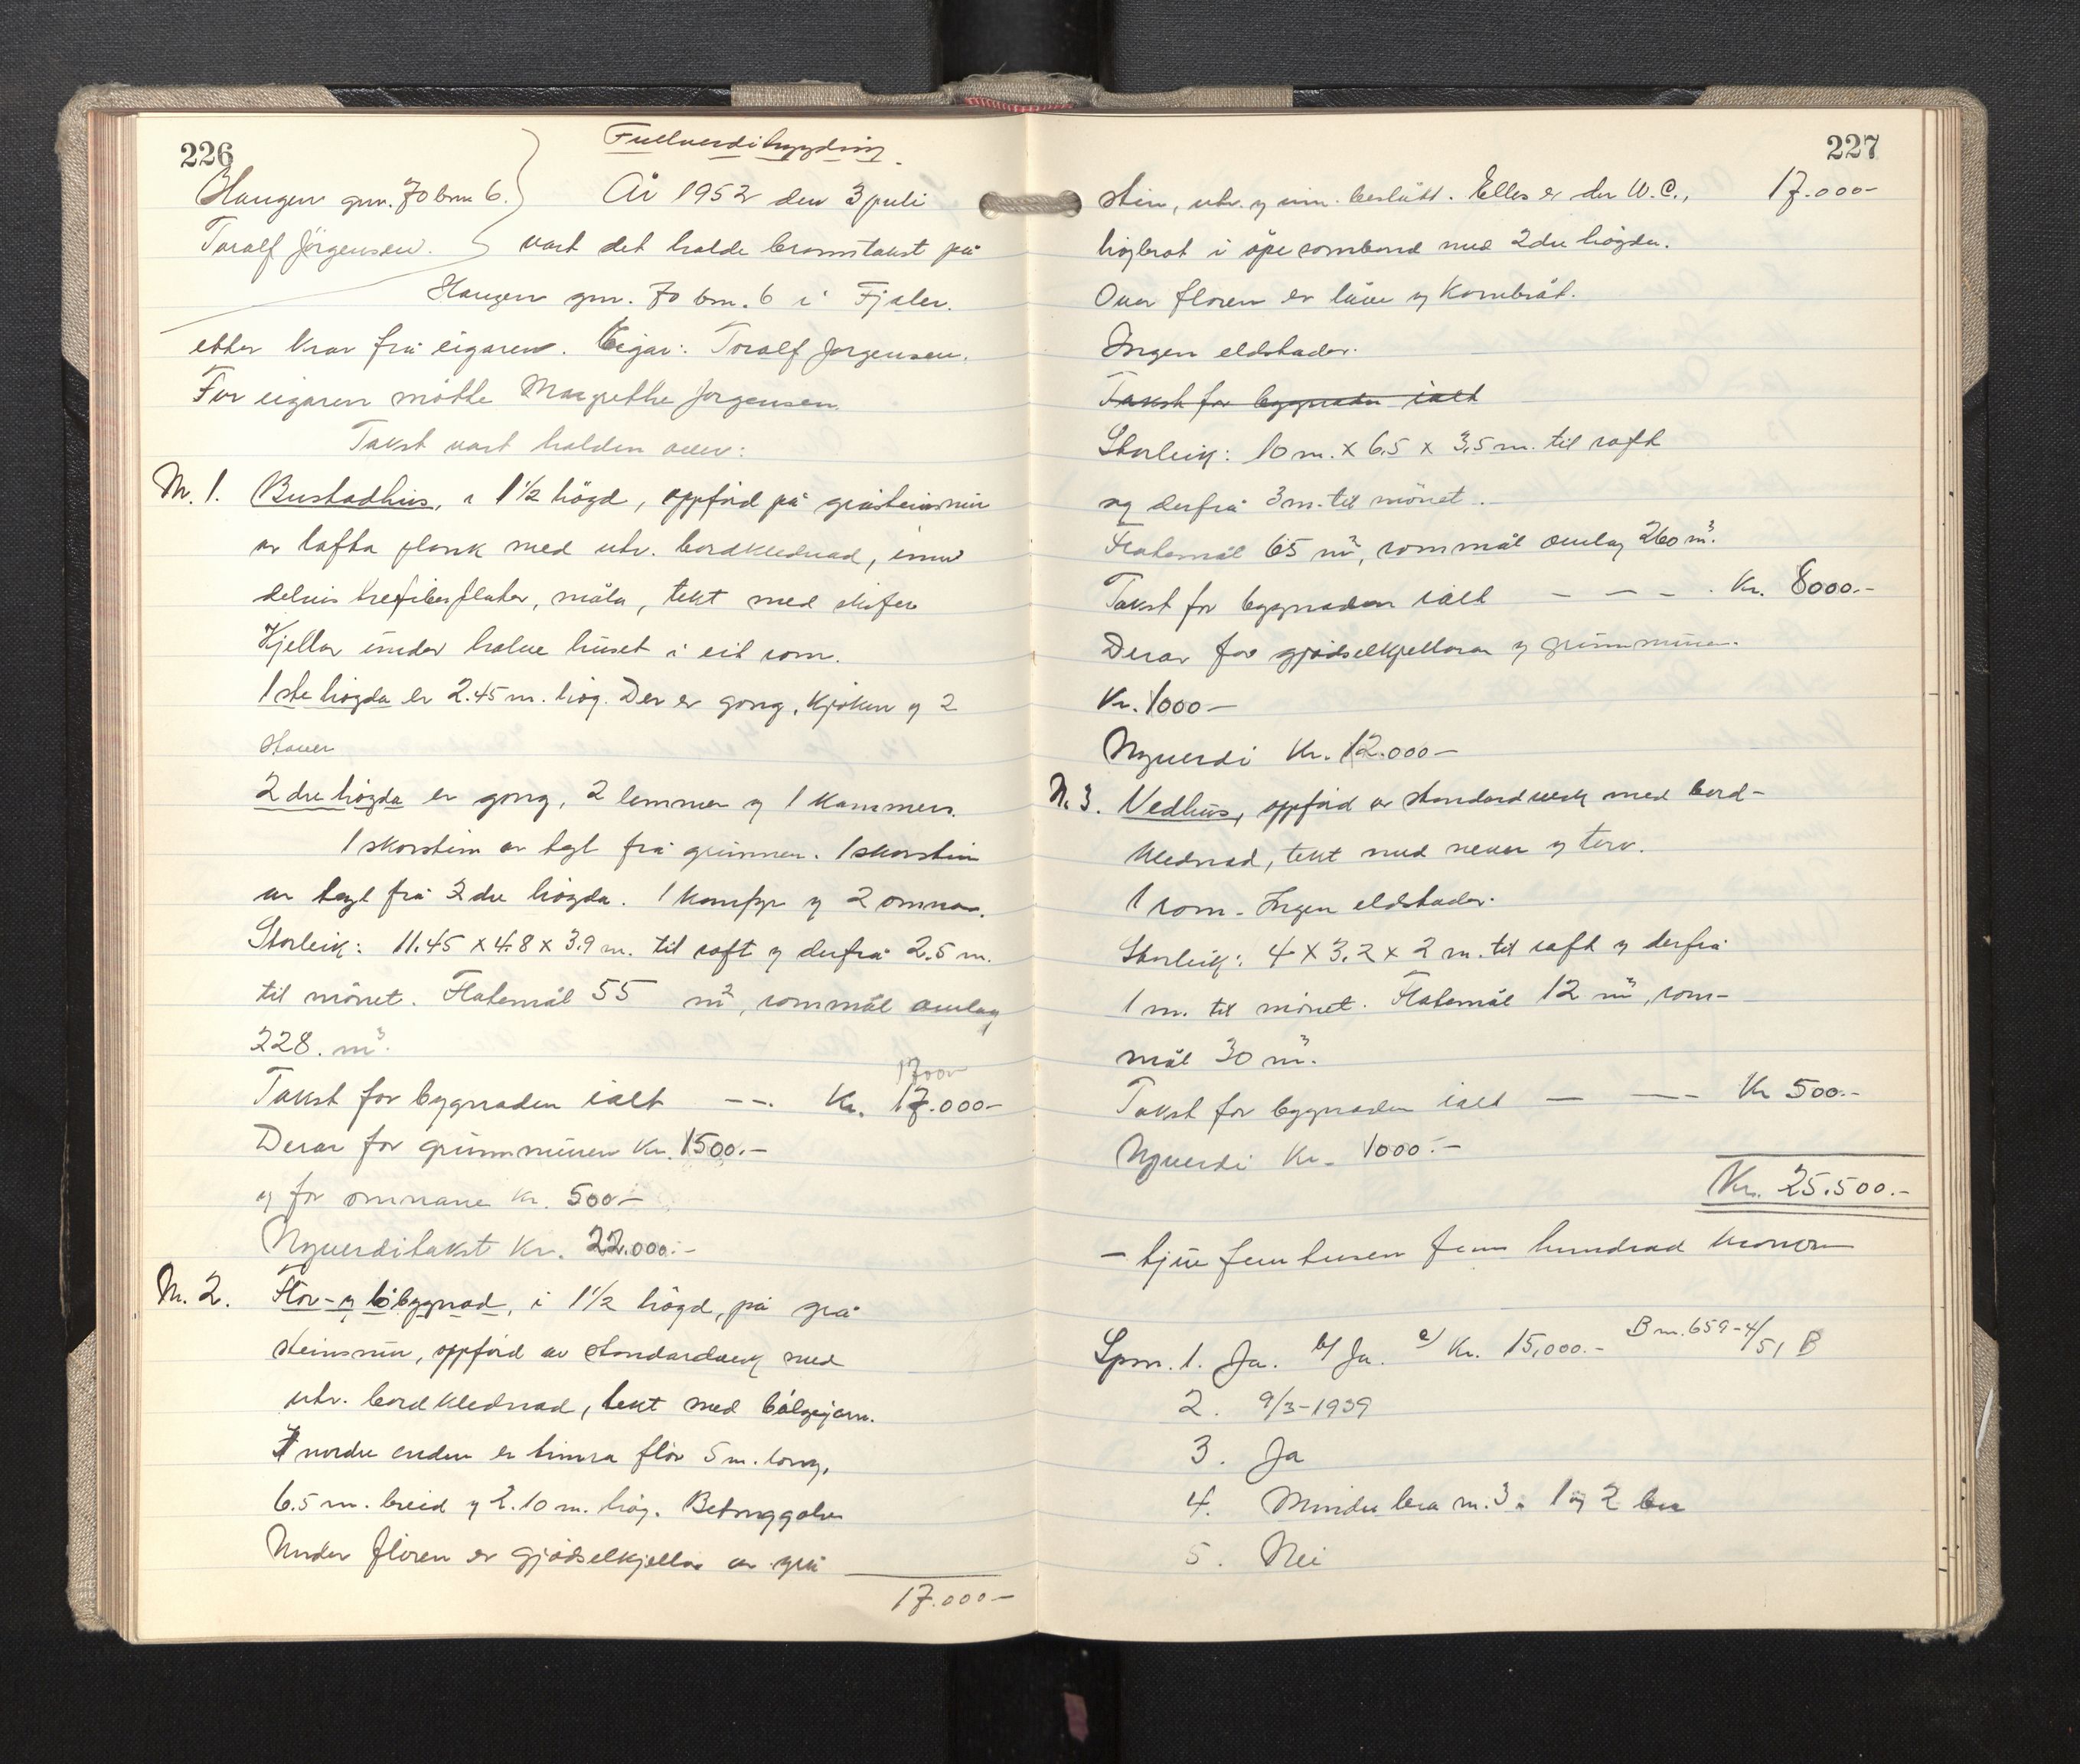 226
Fullverditrygding.
Haugen gnr. 70 bnr 6.
Toralf Jørgensen.
År 1952 den 3 juli
vart det halde branntakst på
Haugen gnr. 70 bnr. 6 i Fjaler.
etter krav frå eigaren. Eigar: Toralf Jørgensen.
For eigaren møtte Margrethe Jørgensen
Takst vart halden over:
Nr. 1. Bustadhus, i 1½ høgd, oppförd på gråsteinsmur
av lafta plank med utv. bordklednad, innv
delvis trefiberplater, måla, tekt med skifer
Kjellar under halve huset i eit rom.
1ste högda er 2.45 m. høg. Der er gong, kjøken og 2
stover
2dre högda er gong, 2 lemmer og 1 kammers.
1 skorstein av tegl frå grunnen. 1 skorstein
av tegl frå 2dre högda. 1 komfyr og 2 omnar.
Storleik: 11.45 x 4.8 x 3.9 m. til raft og derfrå 2.5 m.
til mönet. Flatemål 55 m², rommål omlag
228. m³.
17000
Takst for bygnaden ialt - - . Kr. 17.000-
Derav for grunnmuren Kr. 1500.-
og for omnane kr. 500-
Nyverditakst Kr. 22.000.-
Nr. 2. Flor- og löbygnad, i 1½ högd, på grå
steinsmur, oppförd av standardverk med
utv. bordklednad, tekt med bölgejarn.
I nordre enden er timra flor 5 m. long,
6.5 m. breid og 2.10 m. høg. Betonggolv
Under floren er gjødselkjellar av grå
17.000-
227
stein, utv. og inn. beslått. Elles er der W.C., 17.000-
högbrot i åpe samband med 2dre högda.
Over floren er låve og kornbröt.
Ingen eldstader.
Takst for bygnaden ialt
Storleik: 10 m. x 6.5 x 3,5 m. til raft
og derfrå 3 m. til mönet.
Flatemål 65 m², rommål omlag 260 m³.
Takst for bygnaden ialt - - - . Kr. 8000.-
Derav for gjødselkjellaren og grunnmuren.
Kr. 1000-
Nyverdi Kr. 12.000-
N. 3. Vedhus, oppförd av standardverk med bord-
klednad, tekt med never og torv.
1 rom - Ingen eldstader.
Storleik: 4 x 3.2 x 2 m. til raft og derfrå
1 m. til mönet. Flatemål 12 m², rom-
mål 30 m³.
Takst for bygnaden ialt - - - Kr 500.-
Nyverdi Kr. 1000.-
Kr. 25.500.-
- tjue fem tusen fem hundrad kroner
Spm. 1. Ja. b/ Ja. c/ Kr. 15,000.- B nr. 659-4/51 B
2. 9/3-1939
3. Ja
4. Mindre bra nr. 3. 1 og 2 bra
5. Nei